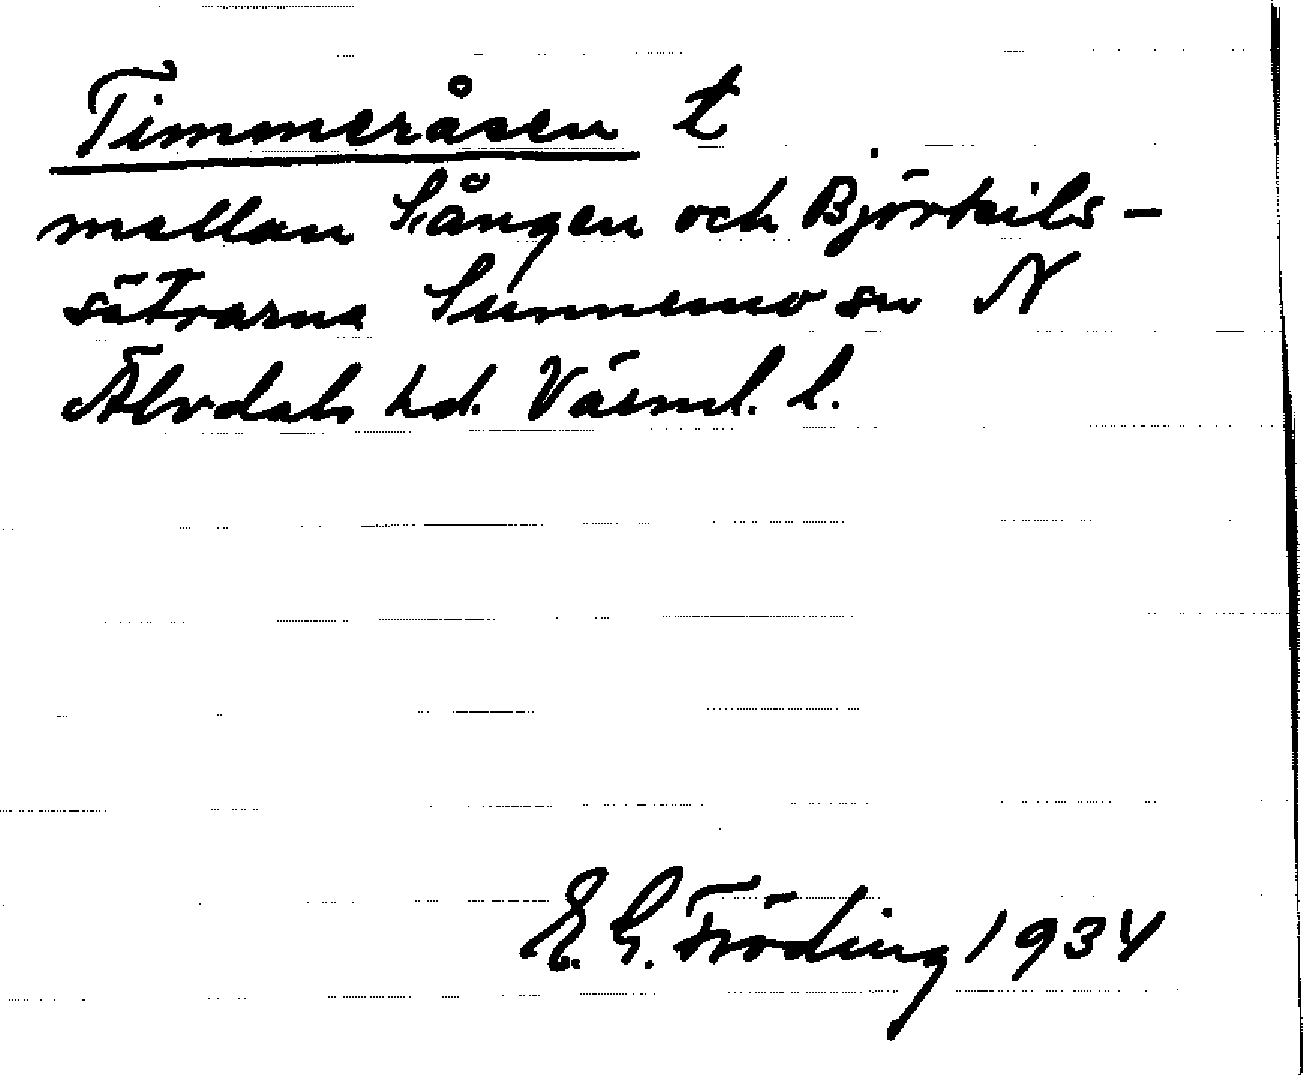 Timmeråsen t
mellan Sången och Björkils-
sätrarna Sunnemo sn N
Älvdals hd. Värml. l.
E. G. Fröding 1934